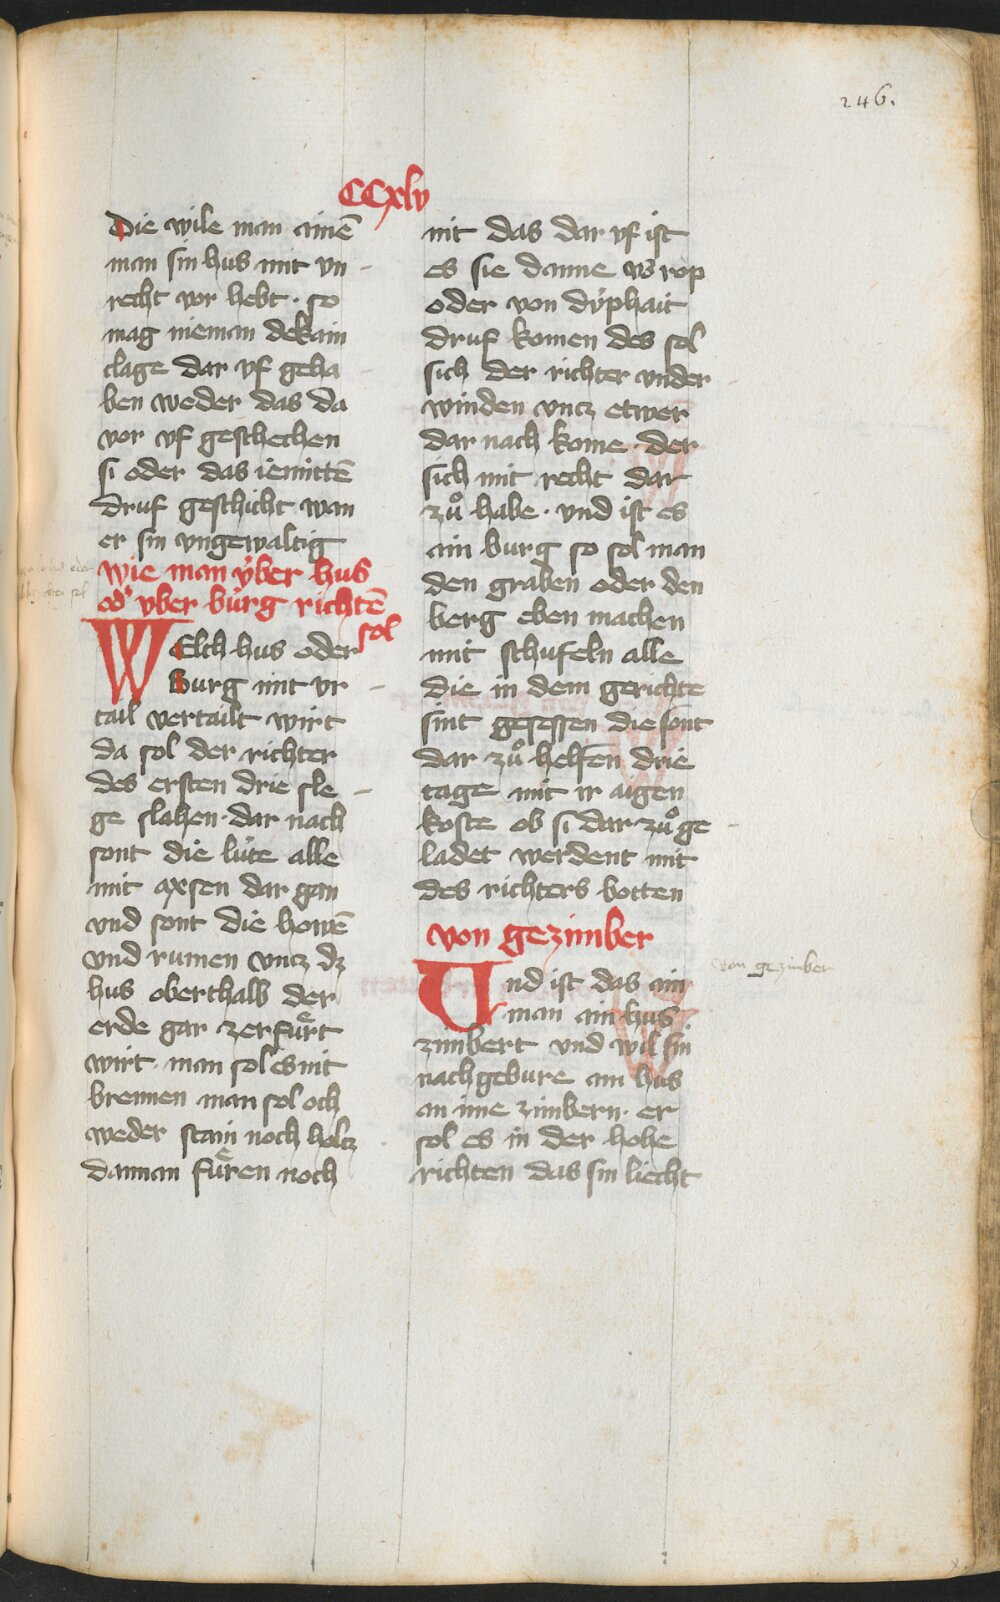 246.
CCxlv
Die wile man ainē
man sin hus mit vn
recht vor hebt · so
mag nieman dekain
clage dar vf geha
ben weder das da
vor vf geschechen
si oder das iemittē
druf geschicht wan
er sin vngewaltig
wie man ÿber hus
od' vber bùrg richtē
sol
WElch hus oder
burg mit vr
tail vertailt wirt
da sol der richter
des ersten drie sle
ge slahen · dar nach
sont die lùte alle
mit axsen dar gan
vnd sont die howē
vnd rumen vncz dz
hus oberthalb der
erde gar zerfuͤrt
wirt · man sol es nit
brennen man sol och
weder stain noch holcz
dannan fuͤren noch
nit das dar vf ist
es sie danne vs rop
oder von dÿphait
druf komen des sol
sich der richter vnder
winden vncz etwer
dar nach kome · der
sich mit recht dar
zuͦ habe · vnd ist es
ain burg so sol man
den graben oder den
berg eben machen
mit schufeln alle
die in dem gerichte
sint gesessen die sont
dar zuͦ helfen drie
tage mit ir aigen
koste ob si dar zuͦ ge
ladet werdent mit
des richters botten
von gezimber
Und ist das ain
man ain hus
zimbert vnd wil sin
nachgebure ain hus
an ime zimbern · er
sol es in der hohe
richten das sin liecht
von gezimber